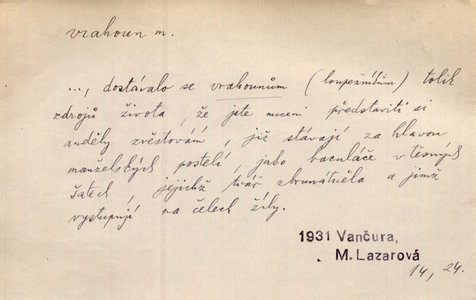 vrahoun m.
..., dostávalo se vrahounům (loupežníkům) tolik
zdrojů života, že jste nuceni představiti si
anděly zvěstování, již stávají za hlavou
manželských postelí, jako baculáče v těsných
šatech, jejichž tvář zbrunátněla a jimž
vystupují na čelech žíly.
1931 Vančura,
M. Lazarová
14, 24.